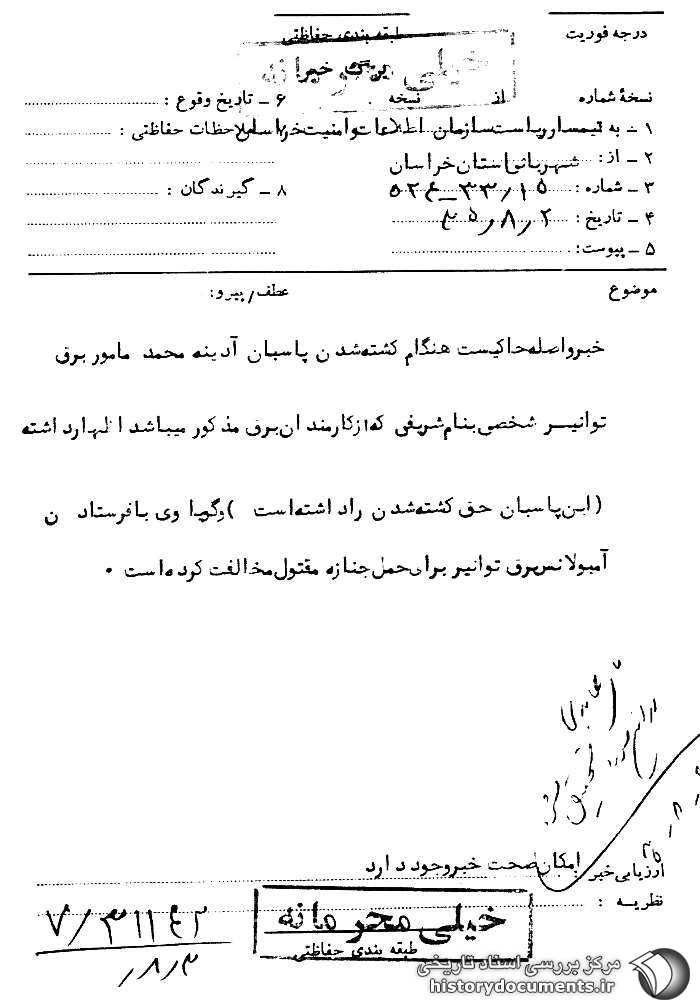 درجه فوریت
طبقه بندی حفاظتی
خیلی محرمانه
برگ خبر
نسخهٔ شماره از نسخه
۱ ـ به تیمسار ریاست سازمان اطلاعات و امنیت خراسان
۲ ـ از: شهربانی استان خراسان
۳ ـ شماره: ۱۵/۳۳ـ۵۲۴
۴ ـ تاریخ: ۲/۸/۴۵
۵ ـ پیوست:
۶ ـ تاریخ وقوع :
ملاحظات حفاظتی :
۸ ـ گیرندگان :
موضوع
عطف/پیرو:
خبر واصله حاکیست هنگام کشته شدن پاسبان آدینه محمد مامور برق
توانیر شخصی بنام شریفی که از کارمندان برق مذکور میباشد اظهار داشته
(این پاسبان حق کشته شدن را داشته است ) و گویا وی با فرستادن
آمبولانس برق توانیر برای حمل جنازه مقتول مخالفت کرده است ۰
ارزیابی خبر : امکان صحت خبر وجود دارد
نظریه :
خیلی محرمانه
طبقه بندی حفاظتی
۷/۳۱۱۴۲
۸/۳
مرکز بررسی اسناد تاریخی
historydocuments.ir